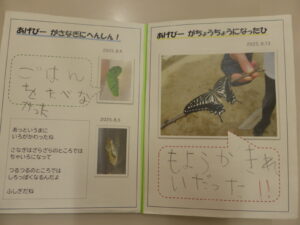 あげぴー がさなぎにへんしん！
2023.8.6
ごはん
をたべな
かった
2023.8.6
あっというまに
いろがかわったね
さなぎはざらざらのところでは
ちゃいろになって
つるつるのところでは
しろっぽくなるんだよ
ふしぎだね
あげぴー がちょうちょうになったひ
もようがきれ
いだった！！